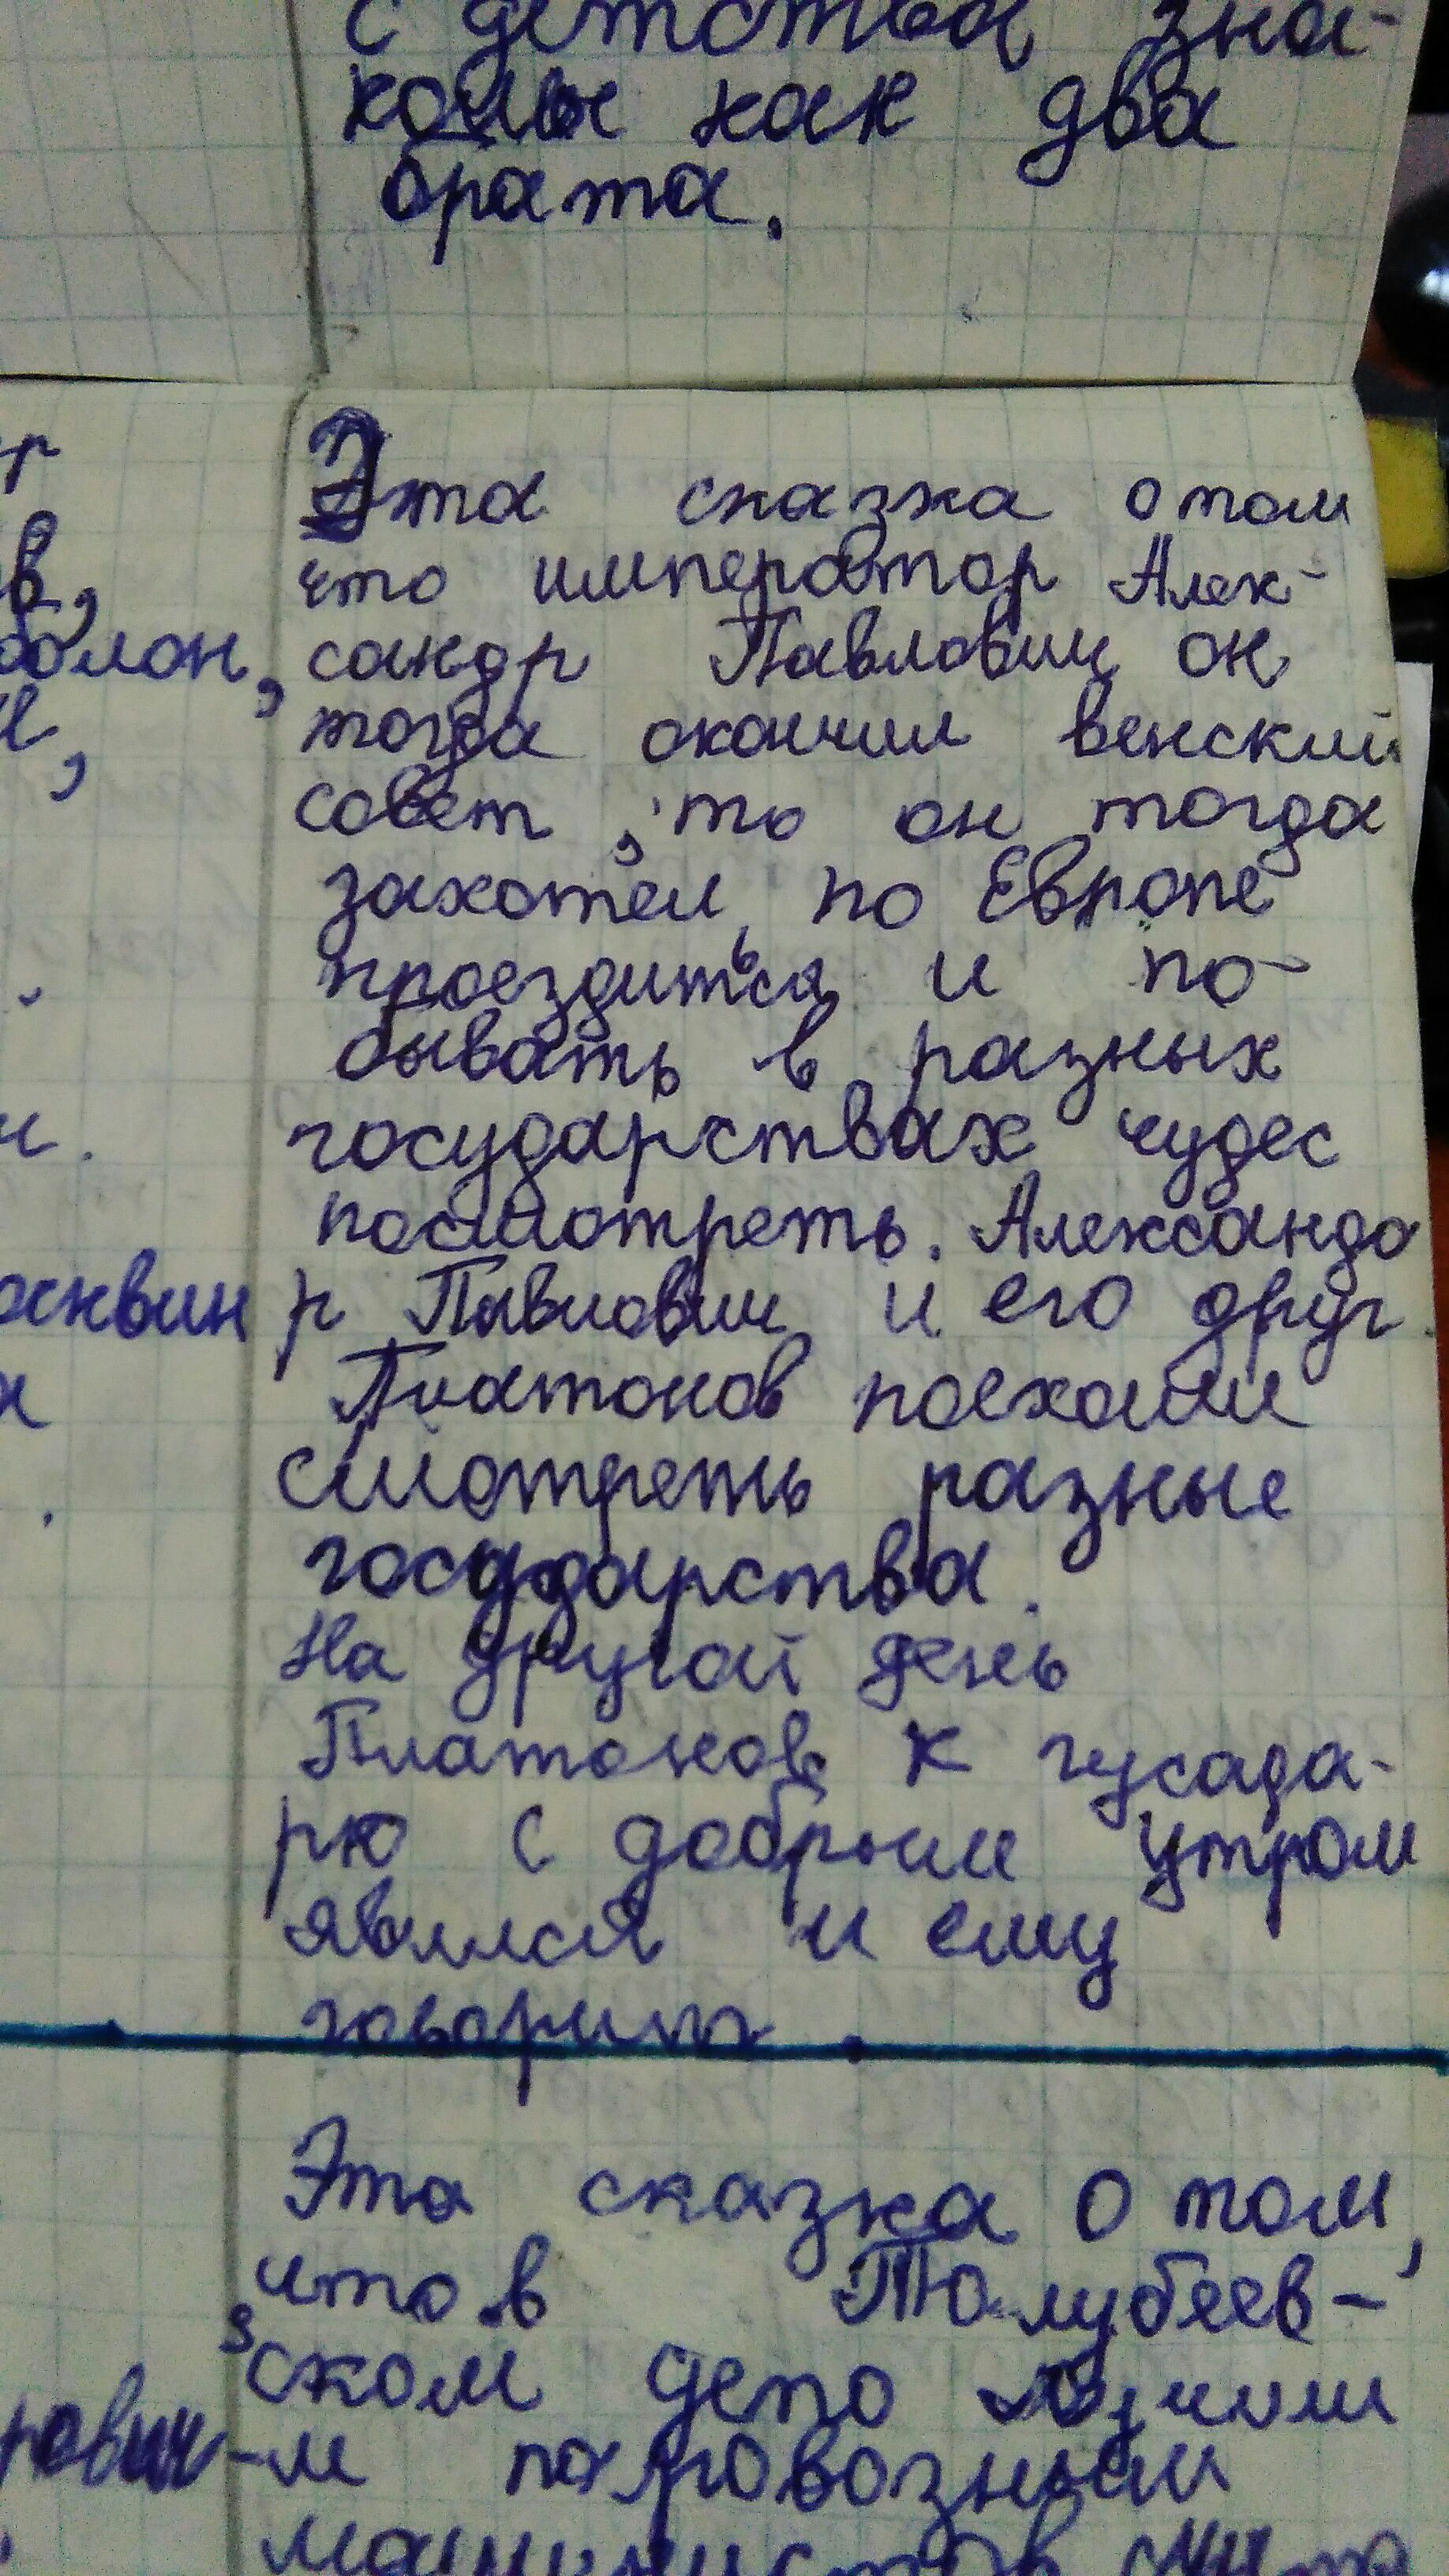 с детства зна-
комы как два
брата.
Эта сказка о том
что император Алек-
сандр Павлович он
тогда окончил венский
совет, то он тогда
захотел по Европе
проездиться и по-
бывать в разных
государствах чудес
посмотреть. Александо
р Павлович и его друг
Платонов поехали
смотреть разные
государства.
На другой день
Платонов к гусада-
рю с добрым утром
явился и ему
говорит.
Эта сказка о том,
что в Толубеев-
ском депо лучши
-м паровозным